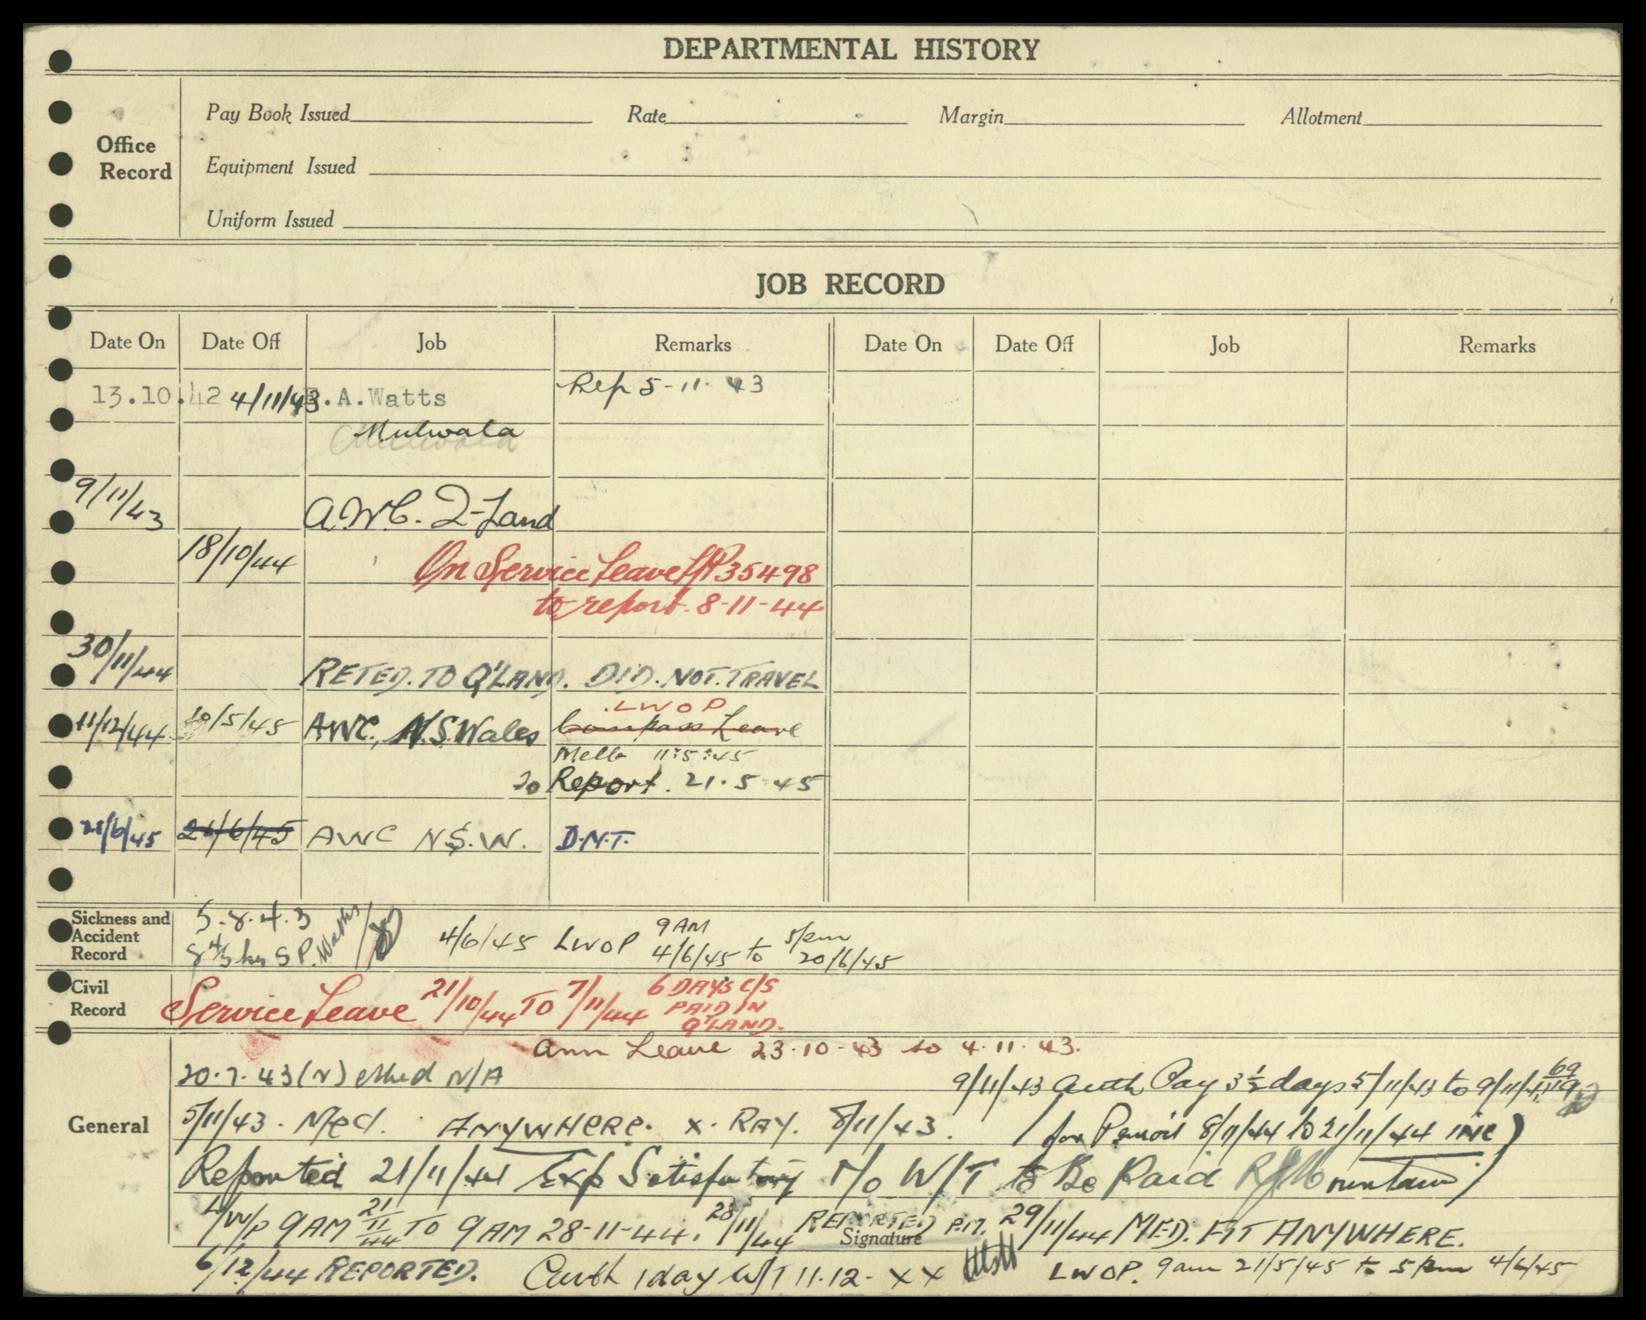 DEPARTMENTAL HISTORY
Office Record
Pay Book Issued Rate Margin Allotment
Equipment Issued
Uniform Issued
JOB RECORD
Date On Date Off Job Remarks Date On Date Off Job Remarks
13.10.42 4/11/43 .A.Watts Rep 5-11-43
Mulwala
9/11/43 A.W.C. Q-Land
18/10/44 On Service Leave 35498
to report 8-11-44
30/11/44 RETED. TO Q'LAND. DID. NOT. TRAVEL
LWOP
11/12/44 10/5/45 AWC., N.S.Wales Compass Leave
Melb 11:5:45
to Report. 21.5.45
21/6/45 21/6/45 AWC N.S.W. D.N.T.
Sickness and Accident Record
5.8.43
S.P. Watts
4/6/45 LWOP 9AM 4/6/45 to 5pm 20/6/45
Civil Record
Service Leave 21/10/44 TO 7/11/44 6 DAYS C/S PAID IN Q'LAND.
Ann Leave 23.10-43 to 4.11.43.
General
20.7.43 (N) N/A 9/11/43 Auth Pay 3½ days 5/11/43 to 9/11/43
5/11/43. Med. ANYWHERE. X. RAY. 8/11/43. for Period 8/11/44 to 21/11/44 inc)
Reported 21/11/44 Exp Satisfactory W/T to Be Paid
9AM 21/11/44 TO 9AM 28-11-44. 28/11/44 REPORTED P.M. 29/11/44 MED. FIT ANYWHERE.
Signature
6/12/44 REPORTED. Auth 1 day W/T 11.12.44 LWOP. 9am 21/5/45 to 5pm 4/6/45